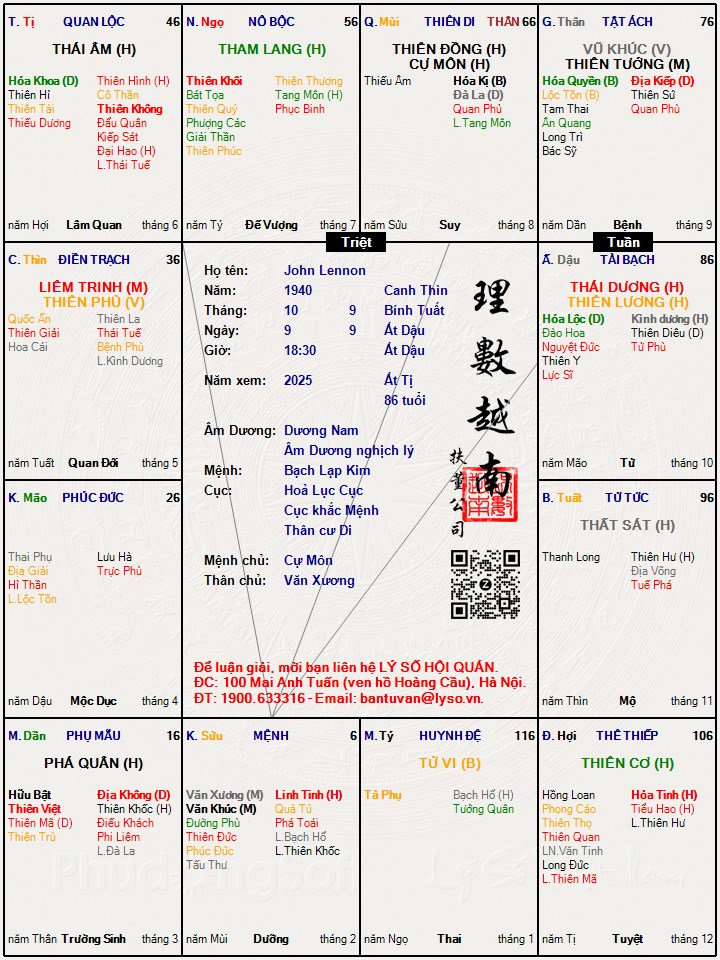 T. Tị QUAN LỘC 46
THÁI ÂM (H)
Hóa Khoa (D) Thiên Hình (H)
Thiên Hỉ Cô Thần
Thiên Tài Thiên Không
Thiếu Dương Đẩu Quân
Kiếp Sát
Đại Hao (H)
L.Thái Tuế
năm Hợi Lâm Quan tháng 6
N. Ngọ NÔ BỘC 56
THAM LANG (H)
Thiên Khôi Thiên Thượng
Bát Tọa Tang Môn (H)
Thiên Quý Phục Binh
Phượng Các
Giải Thần
Thiên Phúc
năm Tý Đế Vượng tháng 7
Q. Mùi THIÊN DI THÂN 66
THIÊN ĐỒNG (H)
CỰ MÔN (H)
Thiếu Âm Hóa Kị (B)
Đà La (D)
Quan Phủ
L.Tang Môn
năm Sửu Suy tháng 8
G. Thân TẬT ÁCH 76
VŨ KHÚC (V)
THIÊN TƯỚNG (M)
Hóa Quyền (B) Địa Kiếp (D)
Lộc Tồn (B) Thiên Sứ
Tam Thai Quan Phù
Ân Quang
Long Trì
Bác Sỹ
năm Dần Bệnh tháng 9
Triệt
Tuần
C. Thìn ĐIỀN TRẠCH 36
LIÊM TRINH (M)
THIÊN PHỦ (V)
Quốc Ấn Thiên La
Thiên Giải Thái Tuế
Hoa Cái Bệnh Phù
L.Kình Dương
năm Tuất Quan Đới tháng 5
Họ tên: John Lennon
Năm: 1940 Canh Thìn
Tháng: 10 9 Bính Tuất
Ngày: 9 9 Ất Dậu
Giờ: 18:30 Ất Dậu
Năm xem: 2025 Ất Tị
86 tuổi
Âm Dương: Dương Nam
Âm Dương nghịch lý
Mệnh: Bạch Lạp Kim
Cục: Hoả Lục Cục
Cục khắc Mệnh
Thân cư Di
Mệnh chủ: Cự Môn
Thân chủ: Văn Xương
理數越南
扶董公司
Để luận giải, mời bạn liên hệ LÝ SỐ HỘI QUÁN.
ĐC: 100 Mai Anh Tuấn (ven hồ Hoàng Cầu), Hà Nội.
ĐT: 1900.633316 - Email: bantuvan@lyso.vn.
Ấ. Dậu TÀI BẠCH 86
THÁI DƯƠNG (H)
THIÊN LƯƠNG (H)
Hóa Lộc (D) Kình dương (H)
Đào Hoa Thiên Diêu (D)
Nguyệt Đức Tử Phù
Thiên Y
Lực Sĩ
năm Mão Tử tháng 10
K. Mão PHÚC ĐỨC 26
Thai Phụ Lưu Hà
Địa Giải Trực Phù
Hỉ Thần
L.Lộc Tồn
năm Dậu Mộc Dục tháng 4
B. Tuất TỬ TỨC 96
THẤT SÁT (H)
Thanh Long Thiên Hư (H)
Địa Võng
Tuế Phá
năm Thìn Mộ tháng 11
M. Dần PHỤ MẪU 16
PHÁ QUÂN (H)
Hữu Bật Địa Không (D)
Thiên Việt Thiên Khốc (H)
Thiên Mã (D) Điếu Khách
Thiên Trù Phi Liêm
L.Đà La
năm Thân Trường Sinh tháng 3
K. Sửu MỆNH 6
Văn Xương (M) Linh Tinh (H)
Văn Khúc (M) Quả Tú
Đường Phù Phá Toái
Thiên Đức L.Bạch Hổ
Phúc Đức L.Thiên Khốc
Tấu Thư
năm Mùi Dưỡng tháng 2
M. Tý HUYNH ĐỆ 116
TỬ VI (B)
Tả Phụ Bạch Hổ (H)
Tướng Quân
năm Ngọ Thai tháng 1
Đ. Hợi THÊ THIẾP 106
THIÊN CƠ (H)
Hồng Loan Hỏa Tinh (H)
Phong Cáo Tiểu Hao (H)
Thiên Thọ L.Thiên Hư
Thiên Quan
LN.Văn Tinh
Long Đức
L.Thiên Mã
năm Tị Tuyệt tháng 12